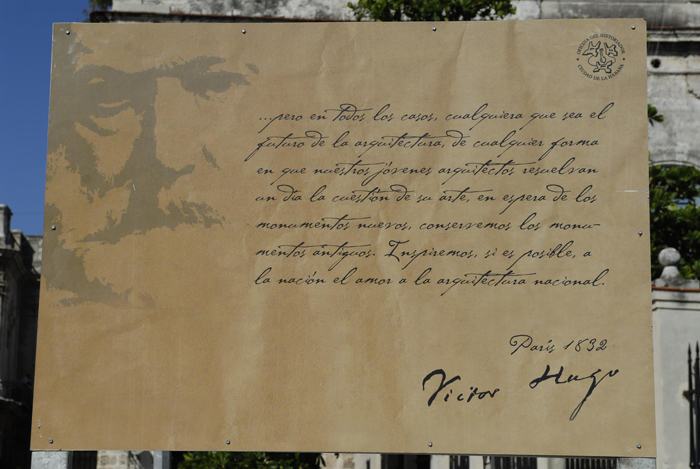 OFICINA DEL HISTORIADOR
CIUDAD DE LA HABANA
...pero en todos los casos, cualquiera que sea el
futuro de la arquitectura, de cualquier forma
en que nuestros jóvenes arquitectos resuelvan
un día la cuestión de su arte, en espera de los
monumentos nuevos, conservemos los monu-
mentos antiguos. Inspiremos, si es posible, a
la nación el amor a la arquitectura nacional.
París 1832
Victor Hugo